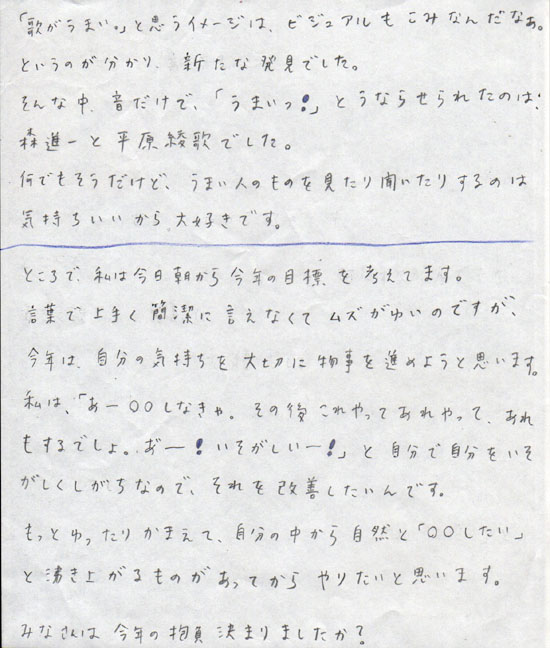 「歌がうまい。」と思うイメージは、ビジュアルもこみなんだなぁ。
というのが分かり、新たな発見でした。
そんな中、音だけで、「うまいっ!」とうならせられたのは、
森進一と平原綾歌でした。
何でもそうだけど、うまい人のものを見たり聞いたりするのは
気持ちいいから大好きです。
ところで、私は今日朝から今年の目標を考えてます。
言葉で上手く簡潔に言えなくてムズがゆいのですが、
今年は、自分の気持ちを大切に物事を進めようと思います。
私は、「あー〇〇しなきゃ。その後これやってあれやって、あれ
もするでしょ。あ゛ー!いそがしいー!」と自分で自分をいそ
がしくしがちなので、それを改善したいんです。
もっとゆったりかまえて、自分の中から自然と「〇〇したい」
と沸き上がるものがあってからやりたいと思います。
みなさんは今年の抱負決まりましたか?